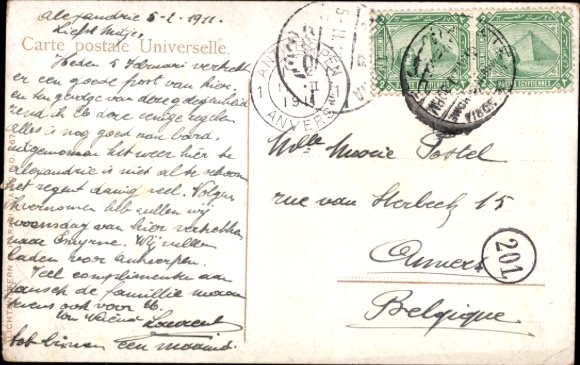 Alexandrie 5-2-1911.
Liefst Meisje,
Carte postale Universelle.
Heden 5 Februari vertrekt
er een goede post van hier,
en ten gevolge van deze gelegenheid
zend ik U deze eenige regelen
Alles is nog goed aan boord.
uitgenomen het weer hier te
alexandrie is niet al te schoon
het regent danig veel. Volgens
ik vernomen heb zullen wij
woensdag van hier vertrekken
naar Smyrne. Wij zullen
laden voor antwerpen.
Veel complimenten aan
gansch de famillie
tevens ook voor U.
Laurent
tot binnen een maand.
Melle Marie Postel
rue van Herbeek 15
Anvers
Belgique
201
ANTWERPEN
1 1
1911
ANVERS
EGYPTIENNES